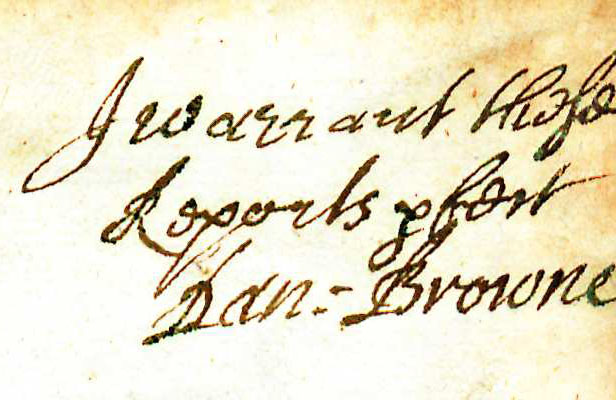 I warrant these
Reports ꝑfect
Dan:- Browne